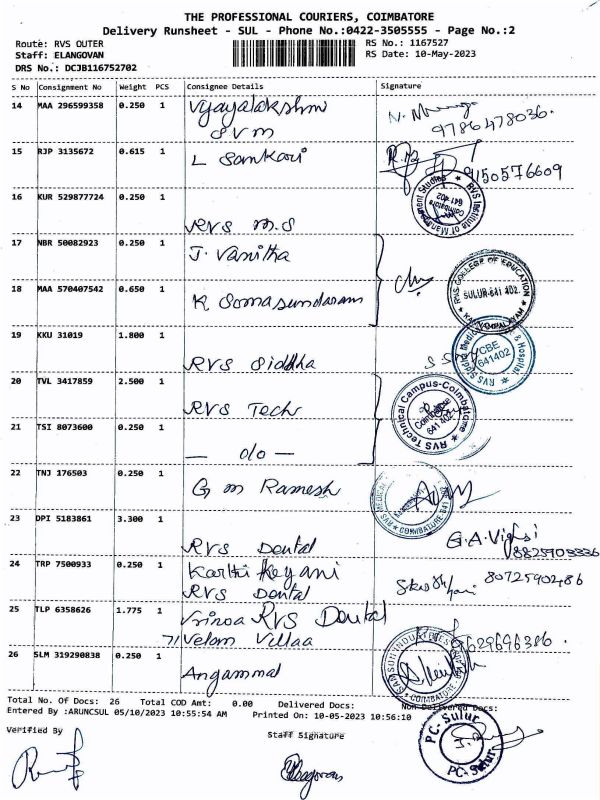 THE PROFESSIONAL COURIERS, COIMBATORE
Delivery Runsheet - SUL - Phone No.:0422-3505555 - Page No.:2
Route: RVS OUTER
RS No.: 1167527
Staff: ELANGOVAN
RS Date: 10-May-2023
DRS No.: DCJB116752702
S No Consignment No Weight PCS Consignee Details Signature
14 MAA 296599358 0.250 1 Vijayalakshmi
SVM
9786478036.
15 RJP 3135672 0.615 1 L Sankari
9150576609
16 KUR 529877724 0.250 1
RVS M.S
RVS Institute of Management Studies
Coimbatore
641 402
17 NBR 50082923 0.250 1 J. Vanitha
18 MAA 570407542 0.650 1 K Somasundaram
RVS COLLEGE OF EDUCATION
SULUR-641 402.
19 KKU 31019 1.800 1
RVS Siddha
& Hospital
CBE
641402
20 TVL 3417859 2.500 1
RVS Tech
RVS Technical Campus-Coimbatore
Coimbatore
641 402
21 TSI 8073600 0.250 1
— do —
22 TNJ 176503 0.250 1 G m Ramesh
23 DPI 5183861 3.300 1
RVS Dental
24 TRP 7500933 0.250 1 Karthikeyani
RVS Dental
8072590486
25 TLP 6358626 1.775 1 Vrinoa RVS Dental
71 Velam Villaa
9629696386.
26 SLM 319290838 0.250 1
Angammal
COIMBATORE
Total No. Of Docs: 26 Total COD Amt: 0.00 Delivered Docs: Non Delivered Docs:
Entered By :ARUNCSUL 05/10/2023 10:55:54 AM Printed On: 10-05-2023 10:56:10
PC-Sulur
PC-Sulur
Verified By
Staff Signature